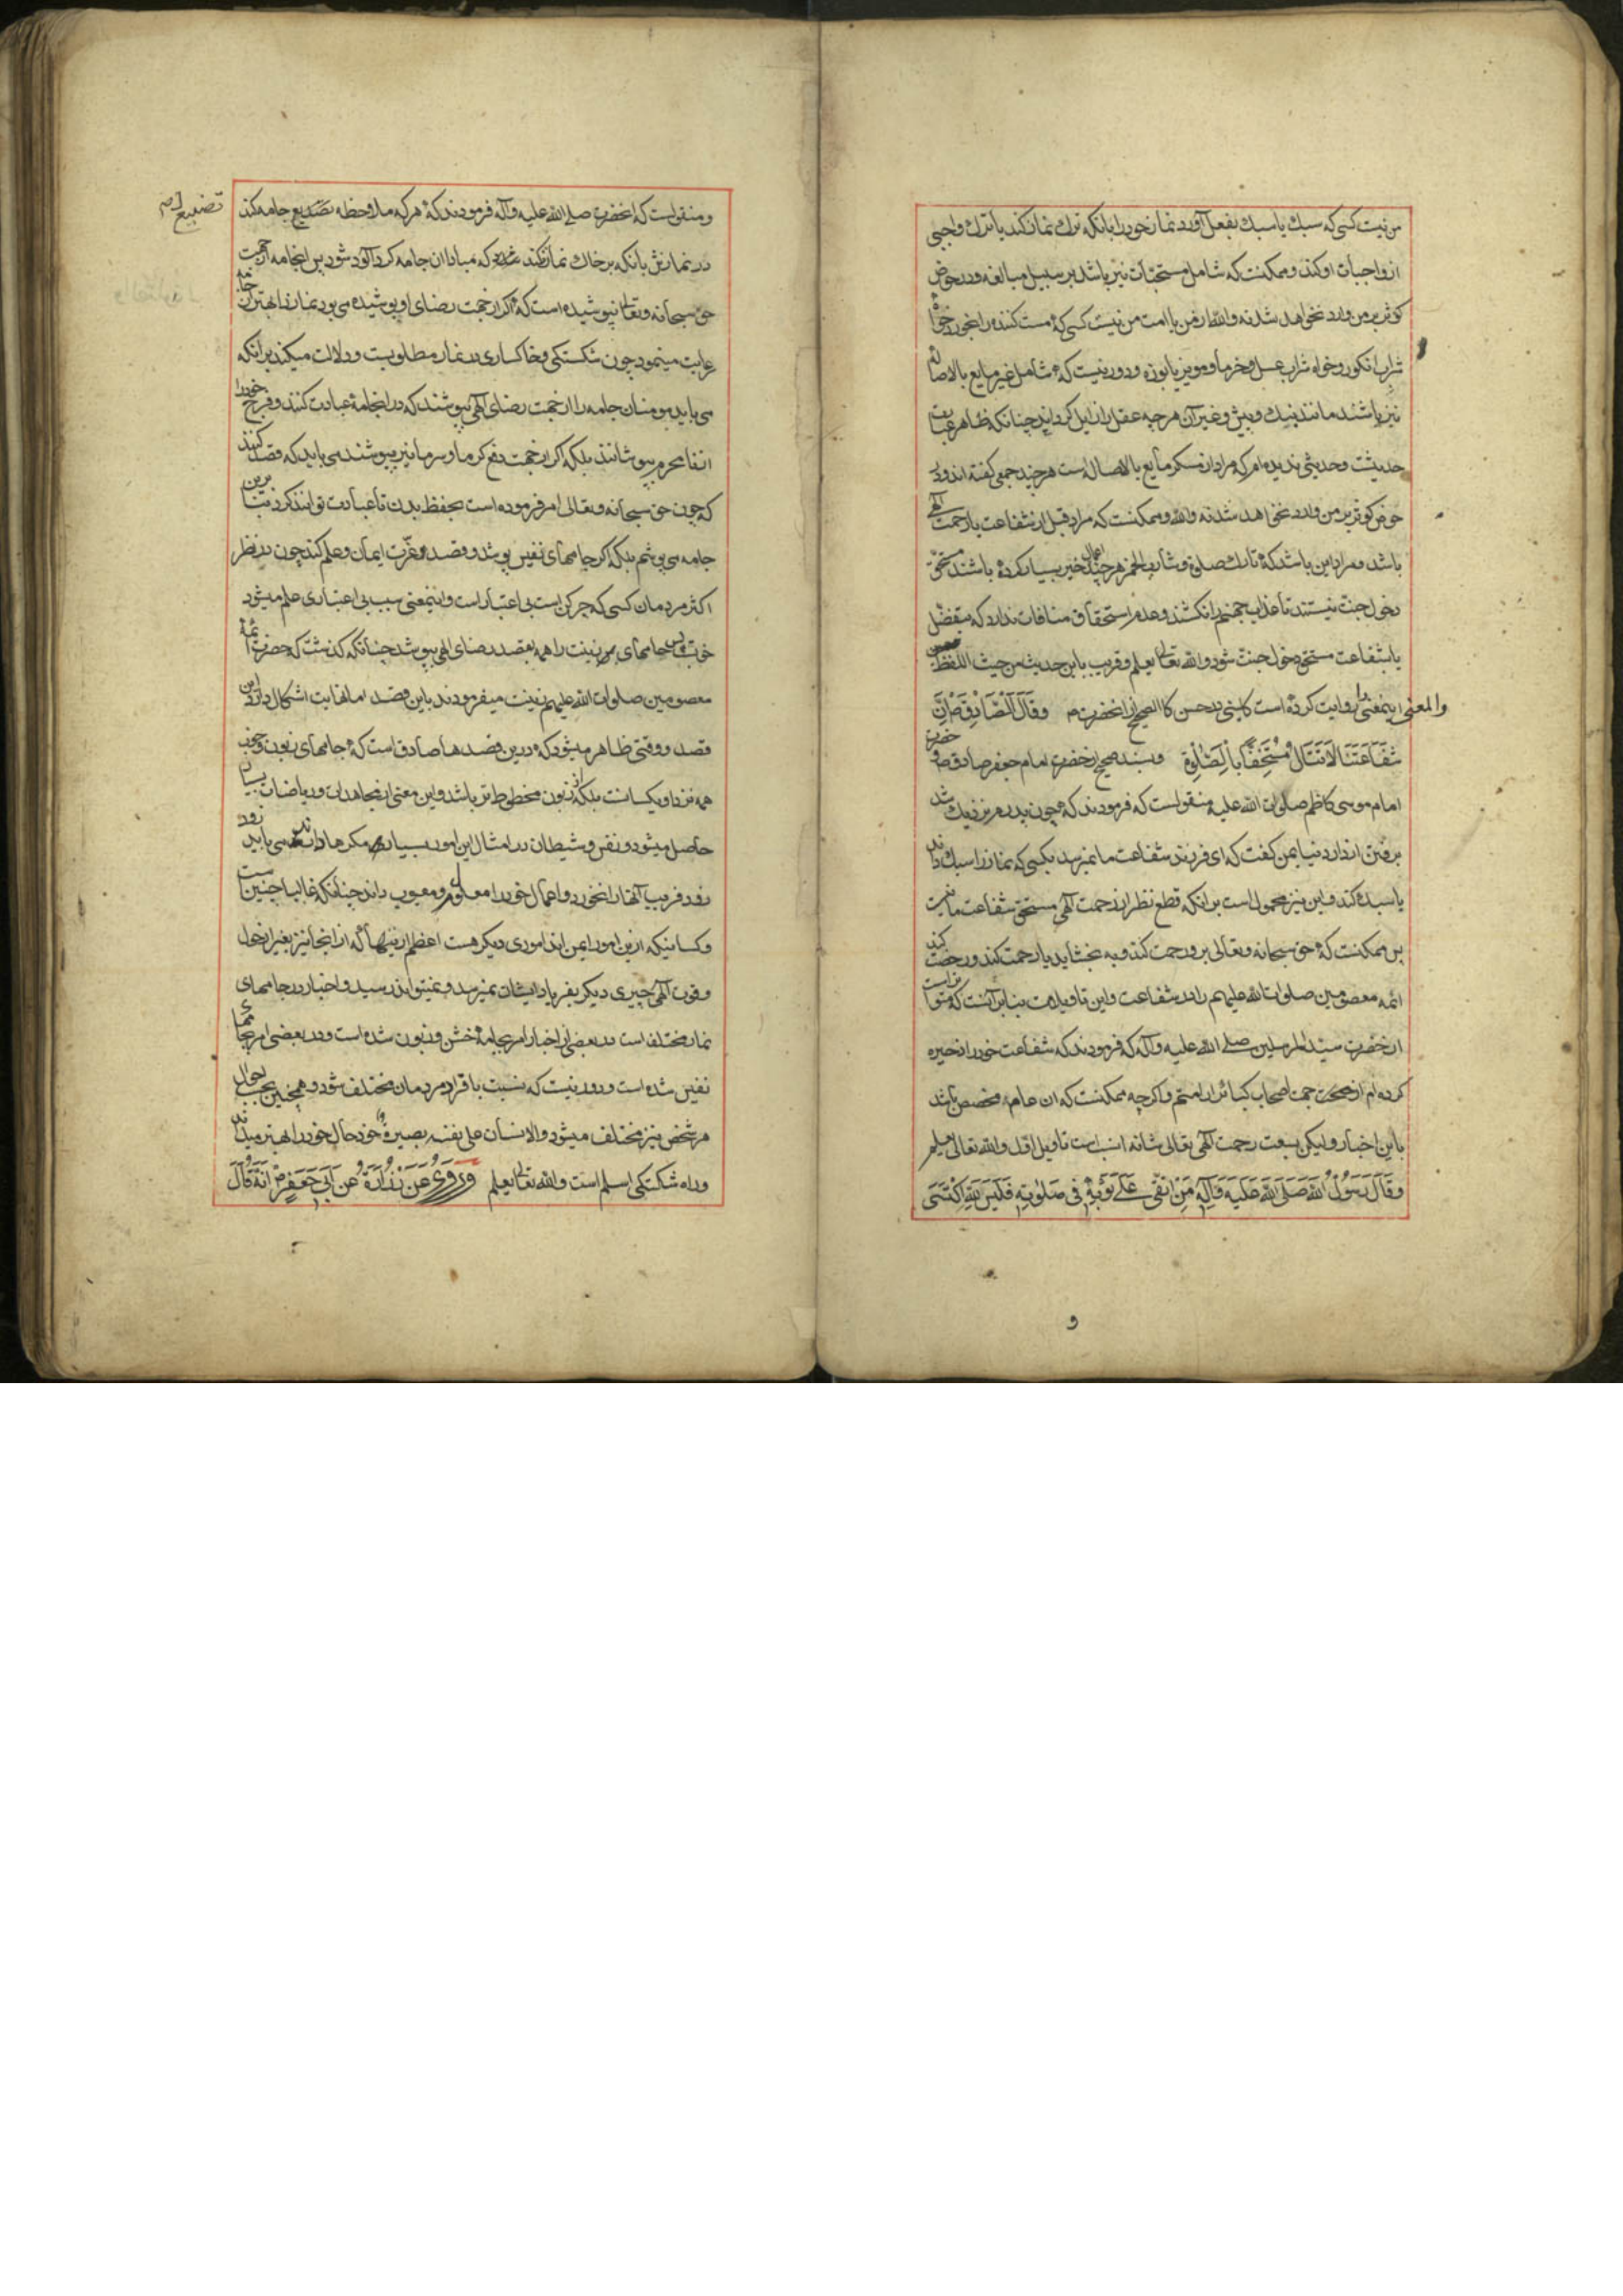 من نیست کسی که سبک یا سبک بفعل آورد نماز خود را بانکه ترک نماز کند یا ترک واجبی
از واجبات او کند و ممکنست که شامل مستحبات نیز باشد بر سبیل مبالغه و در حوض
کوثر بر من وارد نخواهد شد نه والله از من یا امت من نیست کسی که مست کننده را بخورد خواه
شراب انکور و خواه شراب عسل و خرما و مویز یا بوزه و دور نیست که شامل غیر مایع بالاصاله
نیز باشند مانند بنک و بیش و غیر آن هرچه عقل را زایل کرداند چنانکه ظاهر عبارت
حدیثست و حدیثی ندیده‌ام که مراد از مسکر مایع بالاصاله است هرچند جمعی کفته‌اند و در
حوض کوثر بر من وارد نخواهد شد نه والله و ممکنست که مراد قبل از شفاعت یا رحمت الهی
باشد و مراد این باشد که تارک صلوة و شارب الخمر هرچند اعمال خیر بسیار کرده باشند مستحق
دخول جنت نیستند تا عذاب جهنم را نکشند و عدم استحقاق منافات ندارد که بتفضل
یا بشفاعت مستحق دخول جنت شود والله تعالی یعلم و قریب باین حدیث من حیث اللفظ
والمعنی اینمعنی را روایت کرده است کلینی در حسن کالصحیح از انحضرت ص وَقَالَ الصَّادِقُ ص اِنَّ
شَفَاعَتَنَا لَا تَنَالُ مُسْتَخِفًّا بِالصَّلٰوةِ و بسند صحیح از حضرت امام جعفر صادق ص و حضرت
امام موسی کاظم صلوات الله علیه منقولست که فرمودند که چون پدرم نزدیک شد
برفتن از دار دنیا بمن کفت که ای فرزند شفاعت ما نمیرسد بکسی که نماز را سبک داند
یا سبک کند و این نیز محمولست بر انکه قطع نظر از رحمت الهی مستحق شفاعت ما نیست
پس ممکنست که حق سبحانه و تعالی برو رحمت کند و به بخشاید یا رحمت کند و رخصت کند
ائمه معصومین صلوات الله علیهم را در شفاعت و این تاویلات بنابر آنست که متواتر است
از حضرت سید المرسلین صلی الله علیه وآله که فرمودند که شفاعت خود را ذخیره
کرده‌ام از جهت اصحاب کبائر از امتم و اکر چه ممکنست که ان عام مخصص باشد
باین اخبار ولیکن بسعت رحمت الهی تعالی شانه انسب است تاویل اول والله تعالی یعلم
وَقَالَ رَسُولُ اللّٰهِ صَلَّی اللّٰهُ عَلَیهِ وَآلِهِ مَنِ اتَّقٰی عَلٰی ثَوْبِهِ فِی صَلٰوتِهِ فَلَیسَ لِلّٰهِ اکْتَسٰی
و
و منقولست که انحضرت صلی الله علیه وآله فرمودند که هر که ملاحظه تضییع جامه کند
تضییع
در نمازش بانکه بر خاک نماز نکند که مبادا ان جامه کرد آلود شود پس انجامه از جهت
حق سبحانه و تعالی نپوشیده است که اکر از جهت رضای او پوشیده می بود نماز را بهتر از جامه
رعایت مینمود چون شکستکی و خاکساری در نماز مطلوبست و دلالت میکند بر انکه
می باید مومنان جامه را از جهت رضای الهی بپوشند که در انجامه عبادت کنند و فرج خود را
از نامحرم بپوشانند بلکه اکر از جهت دفع کرما و سرما نیز بپوشند می باید که قصد کنند
که چون حق سبحانه و تعالی امر فرموده است بحفظ بدن تا عبادت توانند کرد بنابرین
جامه می پوشم بلکه اکر جامهای نفیس پوشد و قصد عزت ایمان و علم کند چون در نظر
اکثر مردمان کسی که چرکن است بی اعتبار است و اینمعنی سبب بی اعتباری علم میشود
خوبست پس جامهای زینت را همه بقصد رضای الهی بپوشد چنانکه کذشت که حضرات ائمه
معصومین صلوات الله علیهم زینت میفرمودند باین قصد اما نهایت اشکال دارد این
قصد و وقتی ظاهر میشود که درین قصدها صادق است که جامهای زبون و خوب
همه نزد او یکسانست بلکه از زبون محظوظ تر باشد و این معنی از مجاهدات و ریاضات بسیار
حاصل میشود و نفس و شیطان در امثال این امور بسیار مکرها دارند می باید زود
زود فریب آنها را نخورد و اعمال خود را معلوم و معیوب داند چنانکه غالبا چنین است
و کسانیکه ازین امور ایمن اند اموری دیکر هست اعظم از اینها که از انجا نیز بغیر از حول
و قوت الهی چیزی دیکر بفریاد ایشان نمیرسد و نمیتواند رسید و اخبار در جامهای
نماز مختلف است در بعضی از اخبار امر بجامه خشن و زبون شده است و در بعضی امر بجامهای
نفیس شده است و دور نیست که نسبت بافراد مردمان مختلف شود و همچنین بحسب احوال
هر شخص نیز مختلف میشود و الانسان علی نفسه بصیرة خود حال خود را بهتر میداند
و راه شکستکی اسلم است والله تعالی یعلم وَ رُوِیَ عَنْ زُرَارَةَ عَنْ اَبِی جَعْفَرٍ ص اَنَّهُ قَالَ